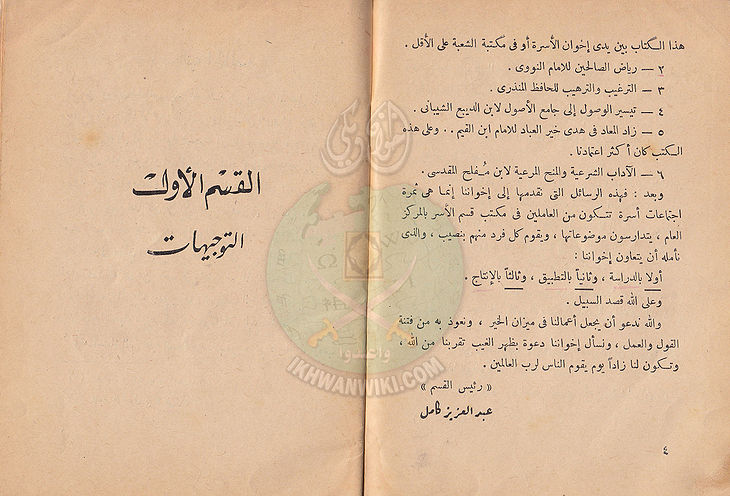 هذا الكتاب بين يدى إخوان الأسرة أو فى مكتبة الشعبة على الأقل .
٢ — رياض الصالحين للامام النووى .
٣ — الترغيب والترهيب للحافظ المنذرى .
٤ — تيسير الوصول إلى جامع الأصول لابن الديبع الشيبانى .
٥ — زاد المعاد فى هدى خير العباد للامام ابن القيم . . وعلى هذه
الكتب كان أكثر اعتمادنا .
٦ — الآداب الشرعية والمنح المرعية لابن مُفلح المقدسى .
وبعد : فهذه الرسائل التى نقدمها إلى إخواننا إنما هى ثمرة
اجتماعات أسرة تتكون من العاملين فى مكتب قسم الأسر بالمركز
العام ، يتدارسون موضوعاتها ، ويقوم كل فرد منهم بنصيب ، والذى
نأمله أن يتعاون إخواننا :
أولا بالدراسة ، وثانياً بالتطبيق ، وثالثاً بالإنتاج .
وعلى الله قصد السبيل .
والله ندعو أن يجعل أعمالنا فى ميزان الخير ، ونعوذ به من فتنة
القول والعمل ، ونسأل إخواننا دعوة بظهر الغيب تقربنا من الله ،
وتكون لنا زاداً يوم يقوم الناس لرب العالمين .
« رئيس القسم »
عبد العزيز كامل
٤
القسم الأول
التوجيهات
وأعدوا
IKHWANWIKI.COM